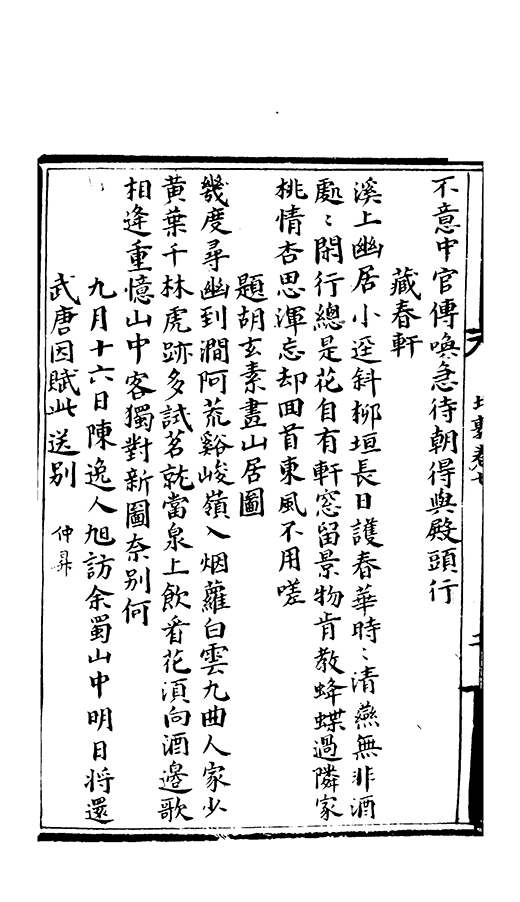 不意中官傳喚急待朝得與殿頭行
藏春軒
溪上幽居小逕斜柳垣長日護春華時〻清燕無非酒
處〻閒行總是花自有軒窓留景物肯教蜂蝶過隣家
桃情杏思渾忘却回首東風不用嗟
題胡玄素畫山居圖
幾度尋幽到澗阿荒谿峻嶺入烟蘿白雲九曲人家少
黄葉千林虎跡多試茗就當泉上飲看花須向酒邊歌
相逢重憶山中客獨對新圖奈别何
九月十六日陳逸人旭訪余蜀山中明日将還
武唐因賦此送别 仲昇